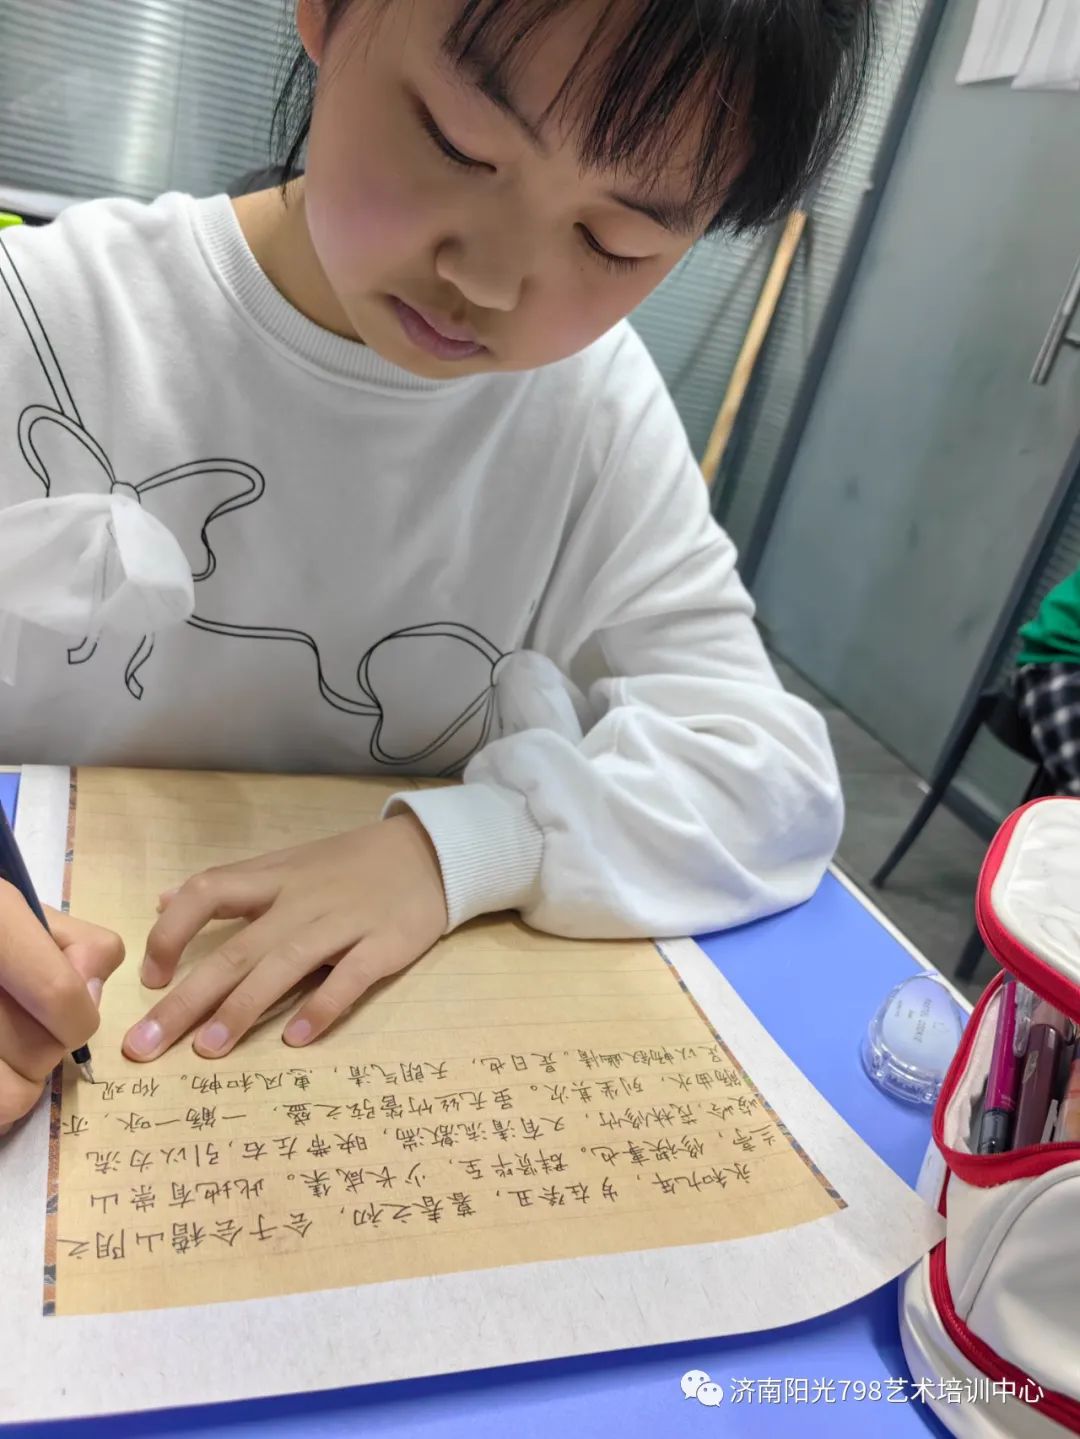 永和九年，岁在癸丑，暮春之初，会于会稽山阴之
兰亭，修禊事也。群贤毕至，少长咸集。此地有崇山
峻岭，茂林修竹，又有清流激湍，映带左右，引以为流
觞曲水，列坐其次。虽无丝竹管弦之盛，一觞一咏，亦
足以畅叙幽情。是日也，天朗气清，惠风和畅。仰观
济南阳光798艺术培训中心